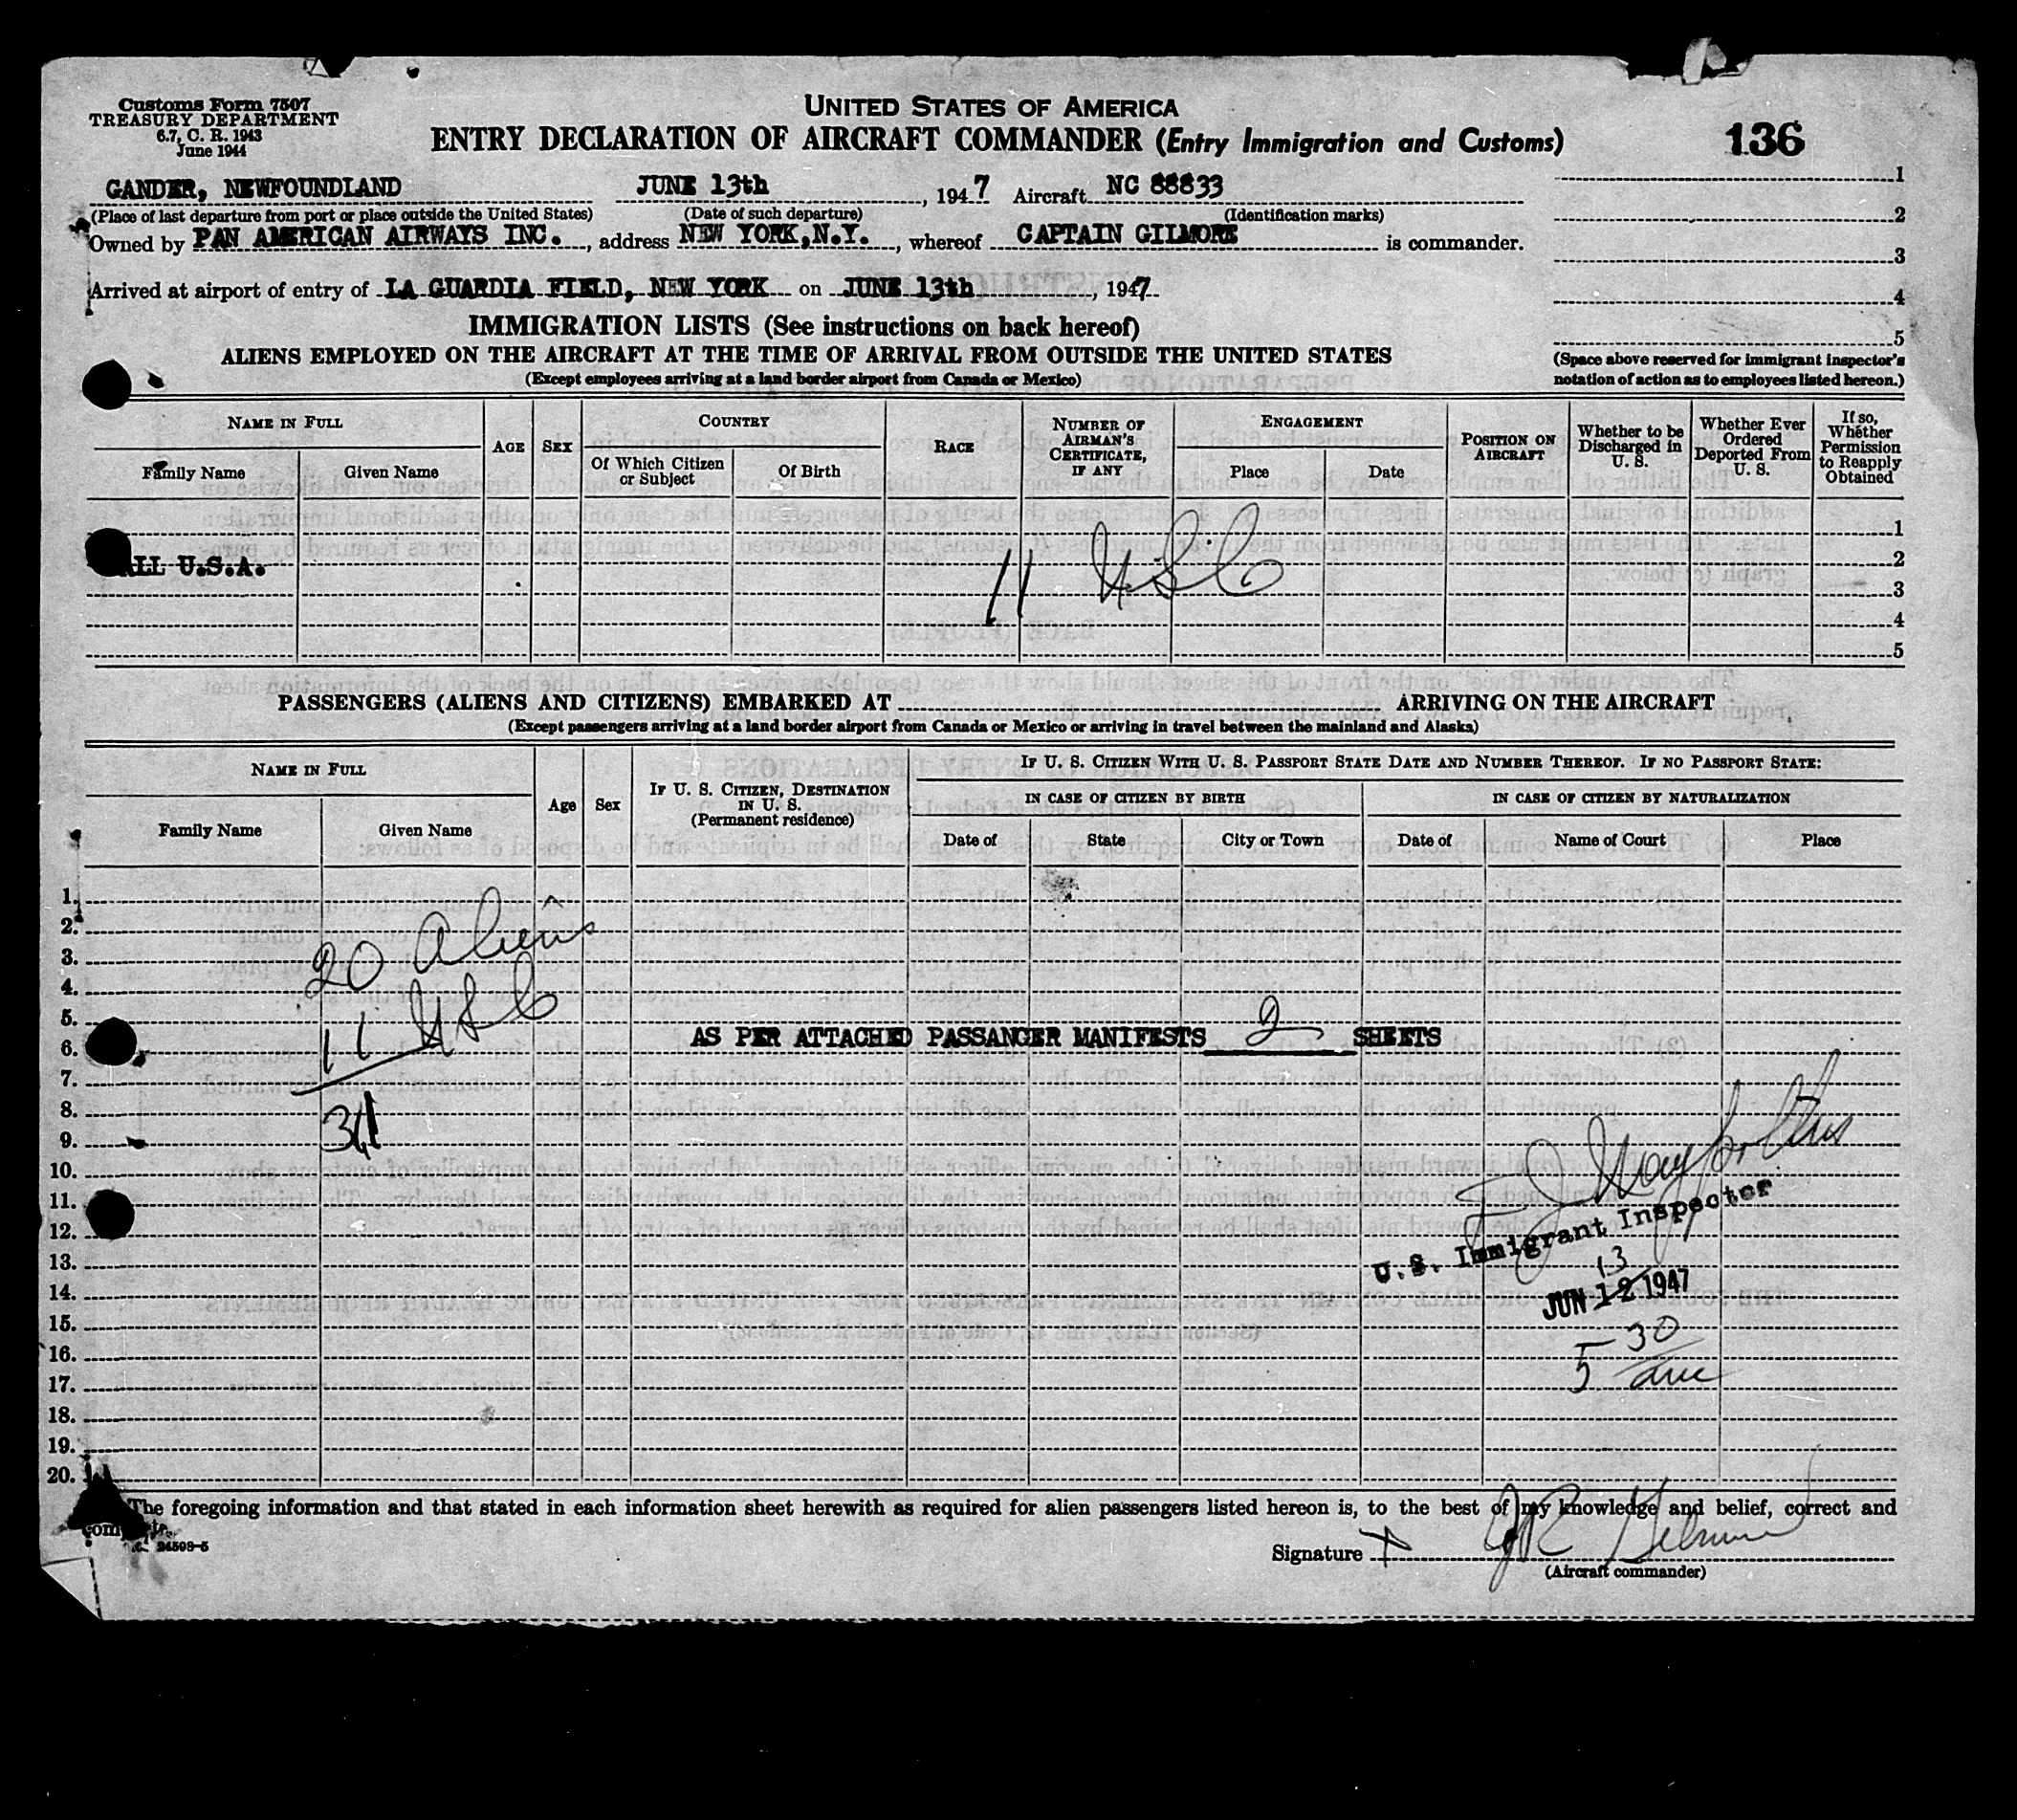 Customs Form 7507
TREASURY DEPARTMENT
6.7, C. R. 1943
June 1944
UNITED STATES OF AMERICA
ENTRY DECLARATION OF AIRCRAFT COMMANDER (Entry Immigration and Customs)
136
GANDER, NEWFOUNDLAND JUNE 13th, 1947 Aircraft NC 88833
(Place of last departure from port or place outside the United States) (Date of such departure) (Identification marks)
Owned by PAN AMERICAN AIRWAYS INC., address NEW YORK,N.Y., whereof CAPTAIN GILMORE is commander.
Arrived at airport of entry of LA GUARDIA FIELD, NEW YORK on JUNE 13th, 1947
1
2
3
4
5
(Space above reserved for immigrant inspector's
notation of action as to employees listed hereon.)
IMMIGRATION LISTS (See instructions on back hereof)
ALIENS EMPLOYED ON THE AIRCRAFT AT THE TIME OF ARRIVAL FROM OUTSIDE THE UNITED STATES
(Except employees arriving at a land border airport from Canada or Mexico)
NAME IN FULL
Family Name Given Name
AGE
SEX
COUNTRY
Of Which Citizen or Subject
Of Birth
RACE
NUMBER OF AIRMAN'S CERTIFICATE, IF ANY
ENGAGEMENT
Place Date
POSITION ON AIRCRAFT
Whether to be Discharged in U. S.
Whether Ever Ordered Deported From U. S.
If so, Whether Permission to Reapply Obtained
1
2
3
4
5
ALL U.S.A.
11 USC
PASSENGERS (ALIENS AND CITIZENS) EMBARKED AT ARRIVING ON THE AIRCRAFT
(Except passengers arriving at a land border airport from Canada or Mexico or arriving in travel between the mainland and Alaska)
NAME IN FULL
Family Name Given Name
Age
Sex
IF U. S. CITIZEN, DESTINATION IN U. S.
(Permanent residence)
IF U. S. CITIZEN WITH U. S. PASSPORT STATE DATE AND NUMBER THEREOF. IF NO PASSPORT STATE:
IN CASE OF CITIZEN BY BIRTH IN CASE OF CITIZEN BY NATURALIZATION
Date of State City or Town Date of Name of Court Place
1.
2.
3.
4.
5.
6.
7.
8.
9.
10.
11.
12.
13.
14.
15.
16.
17.
18.
19.
20.
20 Aliens
11 USC
31
AS PER ATTACHED PASSANGER MANIFESTS 2 SHEETS
U.S. Immigrant Inspector
13
JUN 12 1947
5 30
am
The foregoing information and that stated in each information sheet herewith as required for alien passengers listed hereon is, to the best of my knowledge and belief, correct and
24598-5
Signature X JR Gilmore
(Aircraft commander)